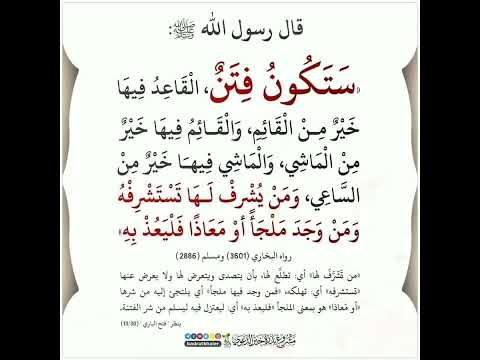 قال رسول الله ﷺ:
«سَتَكُونُ فِتَنٌ، الْقَاعِدُ فِيهَا
خَيْرٌ مِـنْ الْقَائِمِ، وَالْقَـائِمُ فِيهَا خَيْرٌ
مِنْ الْمَاشِي، وَالْمَاشِي فِيهـا خَيْرٌ مِنْ
السَّاعِي، وَمَنْ يُشْرِفْ لَـهَا تَسْتَشْرِفْهُ
وَمَنْ وَجَدَ مَلْجَأً أوْ مَعَاذًا فَلْيَعُذْ بِهِ»
رواه البخاري (3601) ومسلم (2886)
«من تَشَرَّفَ لها» أي: تطلَّع لها، بأن يتصدى ويتعرض لها ولا يعرض عنها
«تستشرفه» أي: تهلكه، «فمن وجد فيها ملجأ» أي يلتجئ إليه من شرها
«أو معاذا» هو بمعنى الملجأ «فليعذ به» أي: ليعتزل فيه ليسلم من شر الفتنة.
ينظر: فتح الباري